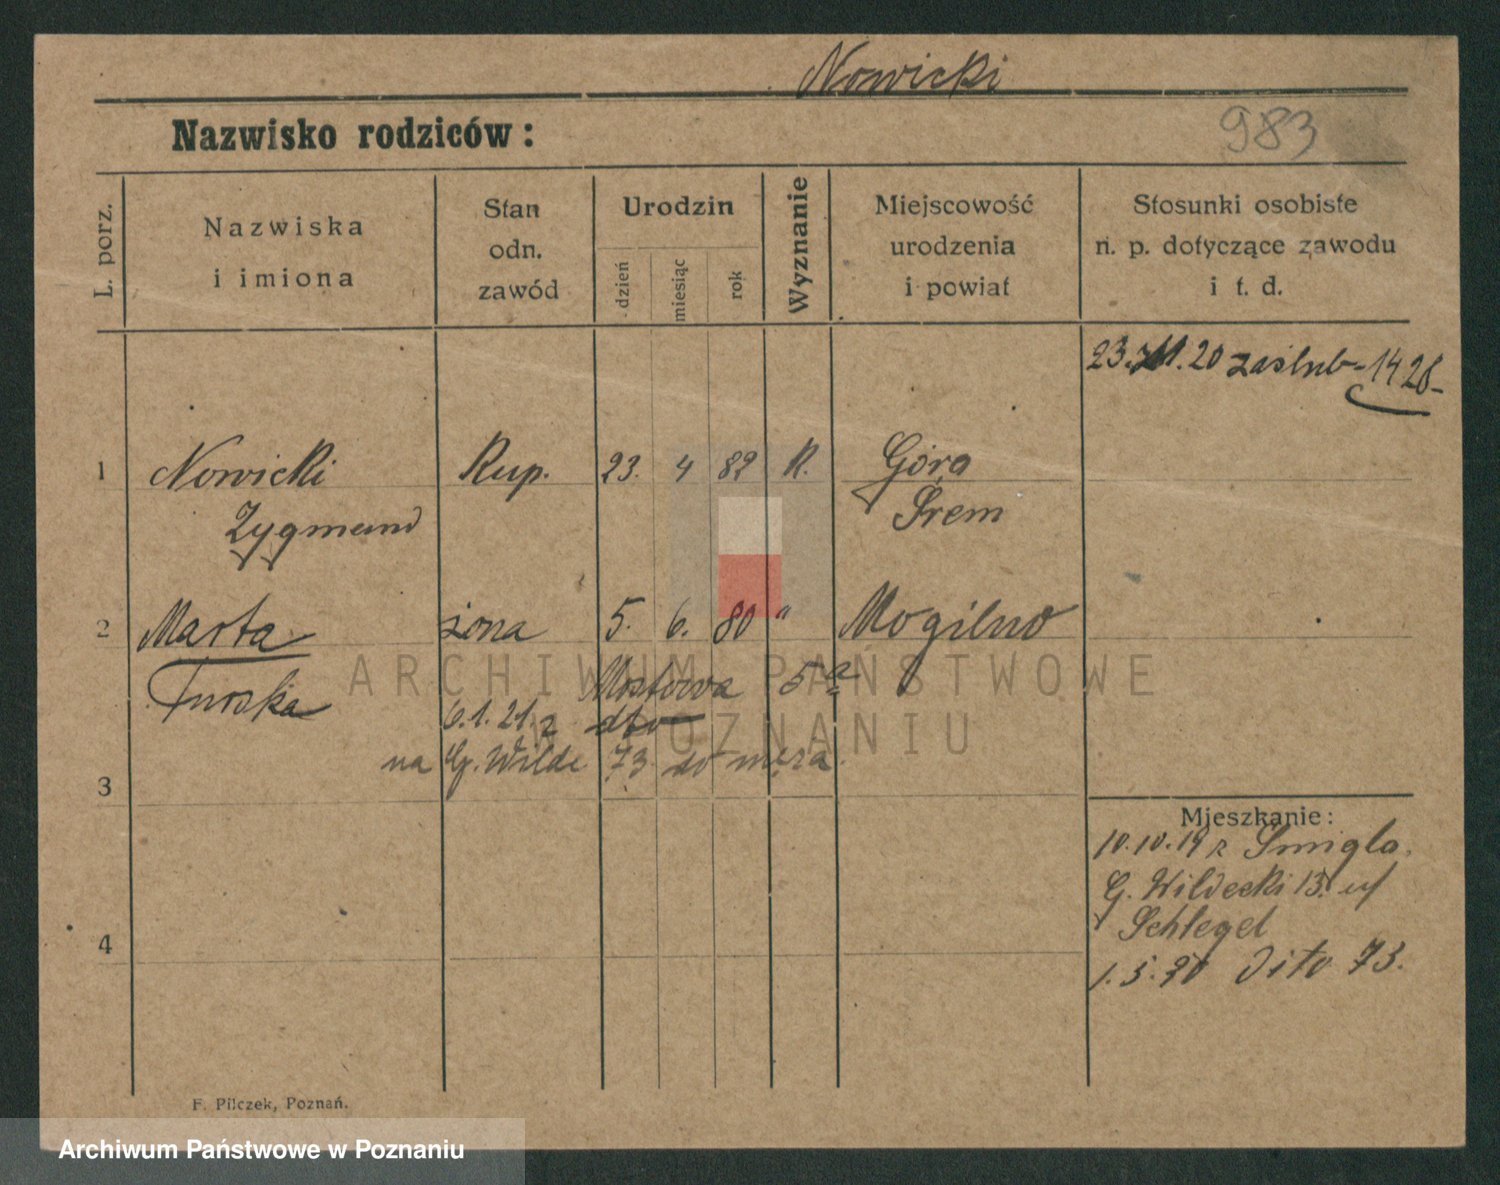 Nowicki
Nazwisko rodziców:
983
L. porz.
Nazwiska
i imiona
Stan
odn.
zawód
Urodzin
dzień
miesiąc
rok
Wyznanie
Miejscowość
urodzenia
i powiat
Stosunki osobiste
n. p. dotyczące zawodu
i t. d.
20 zaślub-1428-
1 Nowicki Kup. 23. 4 82 K. Góra
Zygmund Śrem
2 Marta żona 5. 6. 80 " Mogilno
Turska
Mostowa 5a
6.1.21. z dto
na G. Wilde 73 do męża.
3
Mieszkanie:
10.10.19 z Śmigla.
G. Wildecki 13. u/
Schlegel
1.5.20 dito 73.
4
F. Pilczek, Poznań.
ARCHIWUM PAŃSTWOWE
W POZNANIU
Archiwum Państwowe w Poznaniu